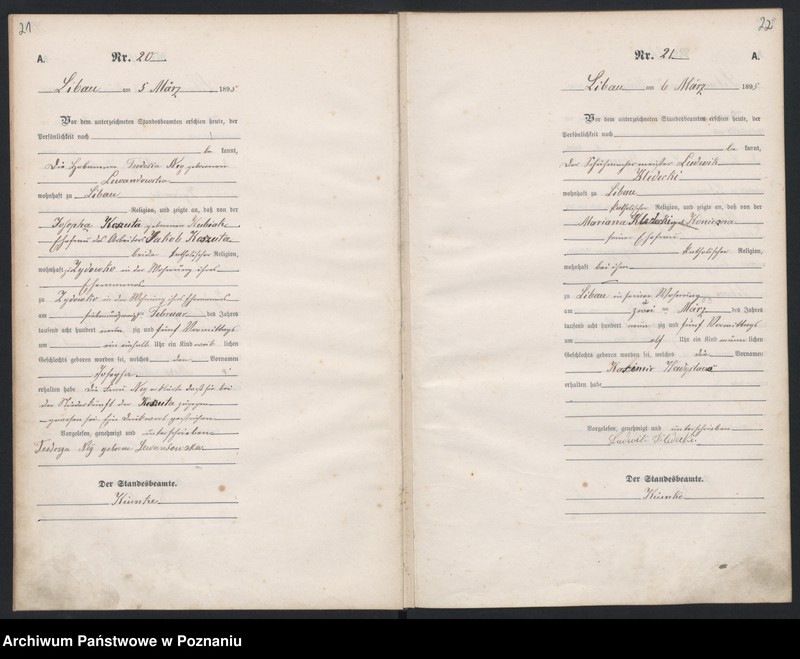 21
A.
Nr. 20
Libau am 5 März 1895
Vor dem unterzeichneten Standesbeamten erschien heute, der
Persönlichkeit nach
be kannt,
Die Hebamme Ney geborenen
Lewandowska
wohnhaft zu Libau
Religion, und zeigte an, daß von der
Josepha Kaszuta geborenen
Ehefrau des Arbeiters Jakob Kaszuta
beide katholischer Religion,
wohnhaft zu Zydowko in der Wohnung ihres
Ehemannes
zu Zydowko in der Wohnung ihres Ehemannes
am Februar des Jahres
tausend acht hundert neun zig und fünf Vormittags
um ein einhalb Uhr ein Kind weib lichen
Geschlechts geboren worden sei, welches den Vornamen
Josepha
erhalten habe Die Frau Ney erklärte daß sie bei
der Niederkunft der Kaszuta zugegen
gewesen sei. Ein Druckwort gestrichen
Vorgelesen, genehmigt und unterschrieben
Ney geborene Lewandowska
Der Standesbeamte.
22
Nr. 21
A.
Libau am 6 März 1895
Vor dem unterzeichneten Standesbeamten erschien heute, der
Persönlichkeit nach
be kannt,
Der Schuhmachermeister Ludwik
Kledecki
wohnhaft zu Libau
katholischer Religion, und zeigte an, daß von der
Mariana Kledecki geb
seiner Ehefrau
katholischer Religion,
wohnhaft bei ihm
zu Libau in seiner Wohnung
am zwei ten März des Jahres
tausend acht hundert neun zig und fünf Vormittags
um elf Uhr ein Kind männ lichen
Geschlechts geboren worden sei, welches die Vornamen
Kazimir
erhalten habe
Vorgelesen, genehmigt und unterschrieben
Ludwik Kledecki
Der Standesbeamte.
Archiwum Państwowe w Poznaniu